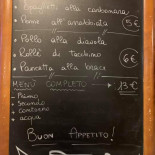 Spaghetti alla carbonara
Penne all'arrabbiata 5€
• Pollo alla diavola
• Rollè di tacchino 6€
• Pancetta alla brace
MENÙ COMPLETO → 13€
• Primo
• Secondo
• Contorno
• acqua
BUON APPETITO!